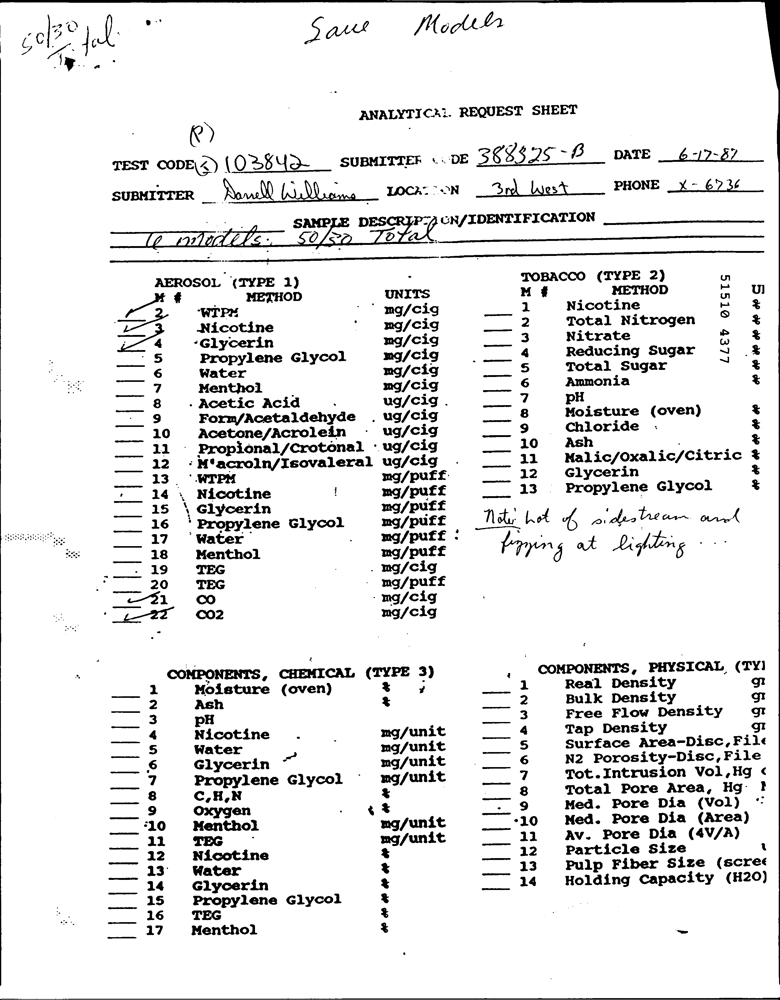 50/30 Total
Save Models
ANALYTICAL REQUEST SHEET
(P)
TEST CODE(S) 103842 SUBMITTER CODE 388325-B DATE 6-17-87
SUBMITTER Darrell Williams LOCATION 3rd West PHONE X-6736
SAMPLE DESCRIPTION/IDENTIFICATION
6 models: 50/30 Total
AEROSOL (TYPE 1)
M # METHOD UNITS
2 WTPM mg/cig
3 Nicotine mg/cig
4 Glycerin mg/cig
5 Propylene Glycol mg/cig
6 Water mg/cig
7 Menthol mg/cig
8 Acetic Acid ug/cig
9 Form/Acetaldehyde ug/cig
10 Acetone/Acrolein ug/cig
11 Propional/Crotonal ug/cig
12 M'acroln/Isovaleral ug/cig
13 WTPM mg/puff
14 Nicotine mg/puff
15 Glycerin mg/puff
16 Propylene Glycol mg/puff
17 Water mg/puff
18 Menthol mg/puff
19 TEG mg/cig
20 TEG mg/puff
21 CO mg/cig
22 CO2 mg/cig
TOBACCO (TYPE 2)
M # METHOD UI
1 Nicotine %
2 Total Nitrogen %
3 Nitrate %
4 Reducing Sugar %
5 Total Sugar %
6 Ammonia %
7 pH
8 Moisture (oven) %
9 Chloride %
10 Ash %
11 Malic/Oxalic/Citric %
12 Glycerin %
13 Propylene Glycol %
51510 4377
Note: Lot of sidestream and
fizzing at lighting ...
COMPONENTS, CHEMICAL (TYPE 3)
1 Moisture (oven) %
2 Ash %
3 pH
4 Nicotine mg/unit
5 Water mg/unit
6 Glycerin mg/unit
7 Propylene Glycol mg/unit
8 C,H,N %
9 Oxygen %
10 Menthol mg/unit
11 TEG mg/unit
12 Nicotine %
13 Water %
14 Glycerin %
15 Propylene Glycol %
16 TEG %
17 Menthol %
COMPONENTS, PHYSICAL (TY
1 Real Density g
2 Bulk Density g
3 Free Flow Density g
4 Tap Density g
5 Surface Area-Disc,File
6 N2 Porosity-Disc,File
7 Tot.Intrusion Vol,Hg
8 Total Pore Area, Hg
9 Med. Pore Dia (Vol)
10 Med. Pore Dia (Area)
11 Av. Pore Dia (4V/A)
12 Particle Size
13 Pulp Fiber Size (scree
14 Holding Capacity (H2O)